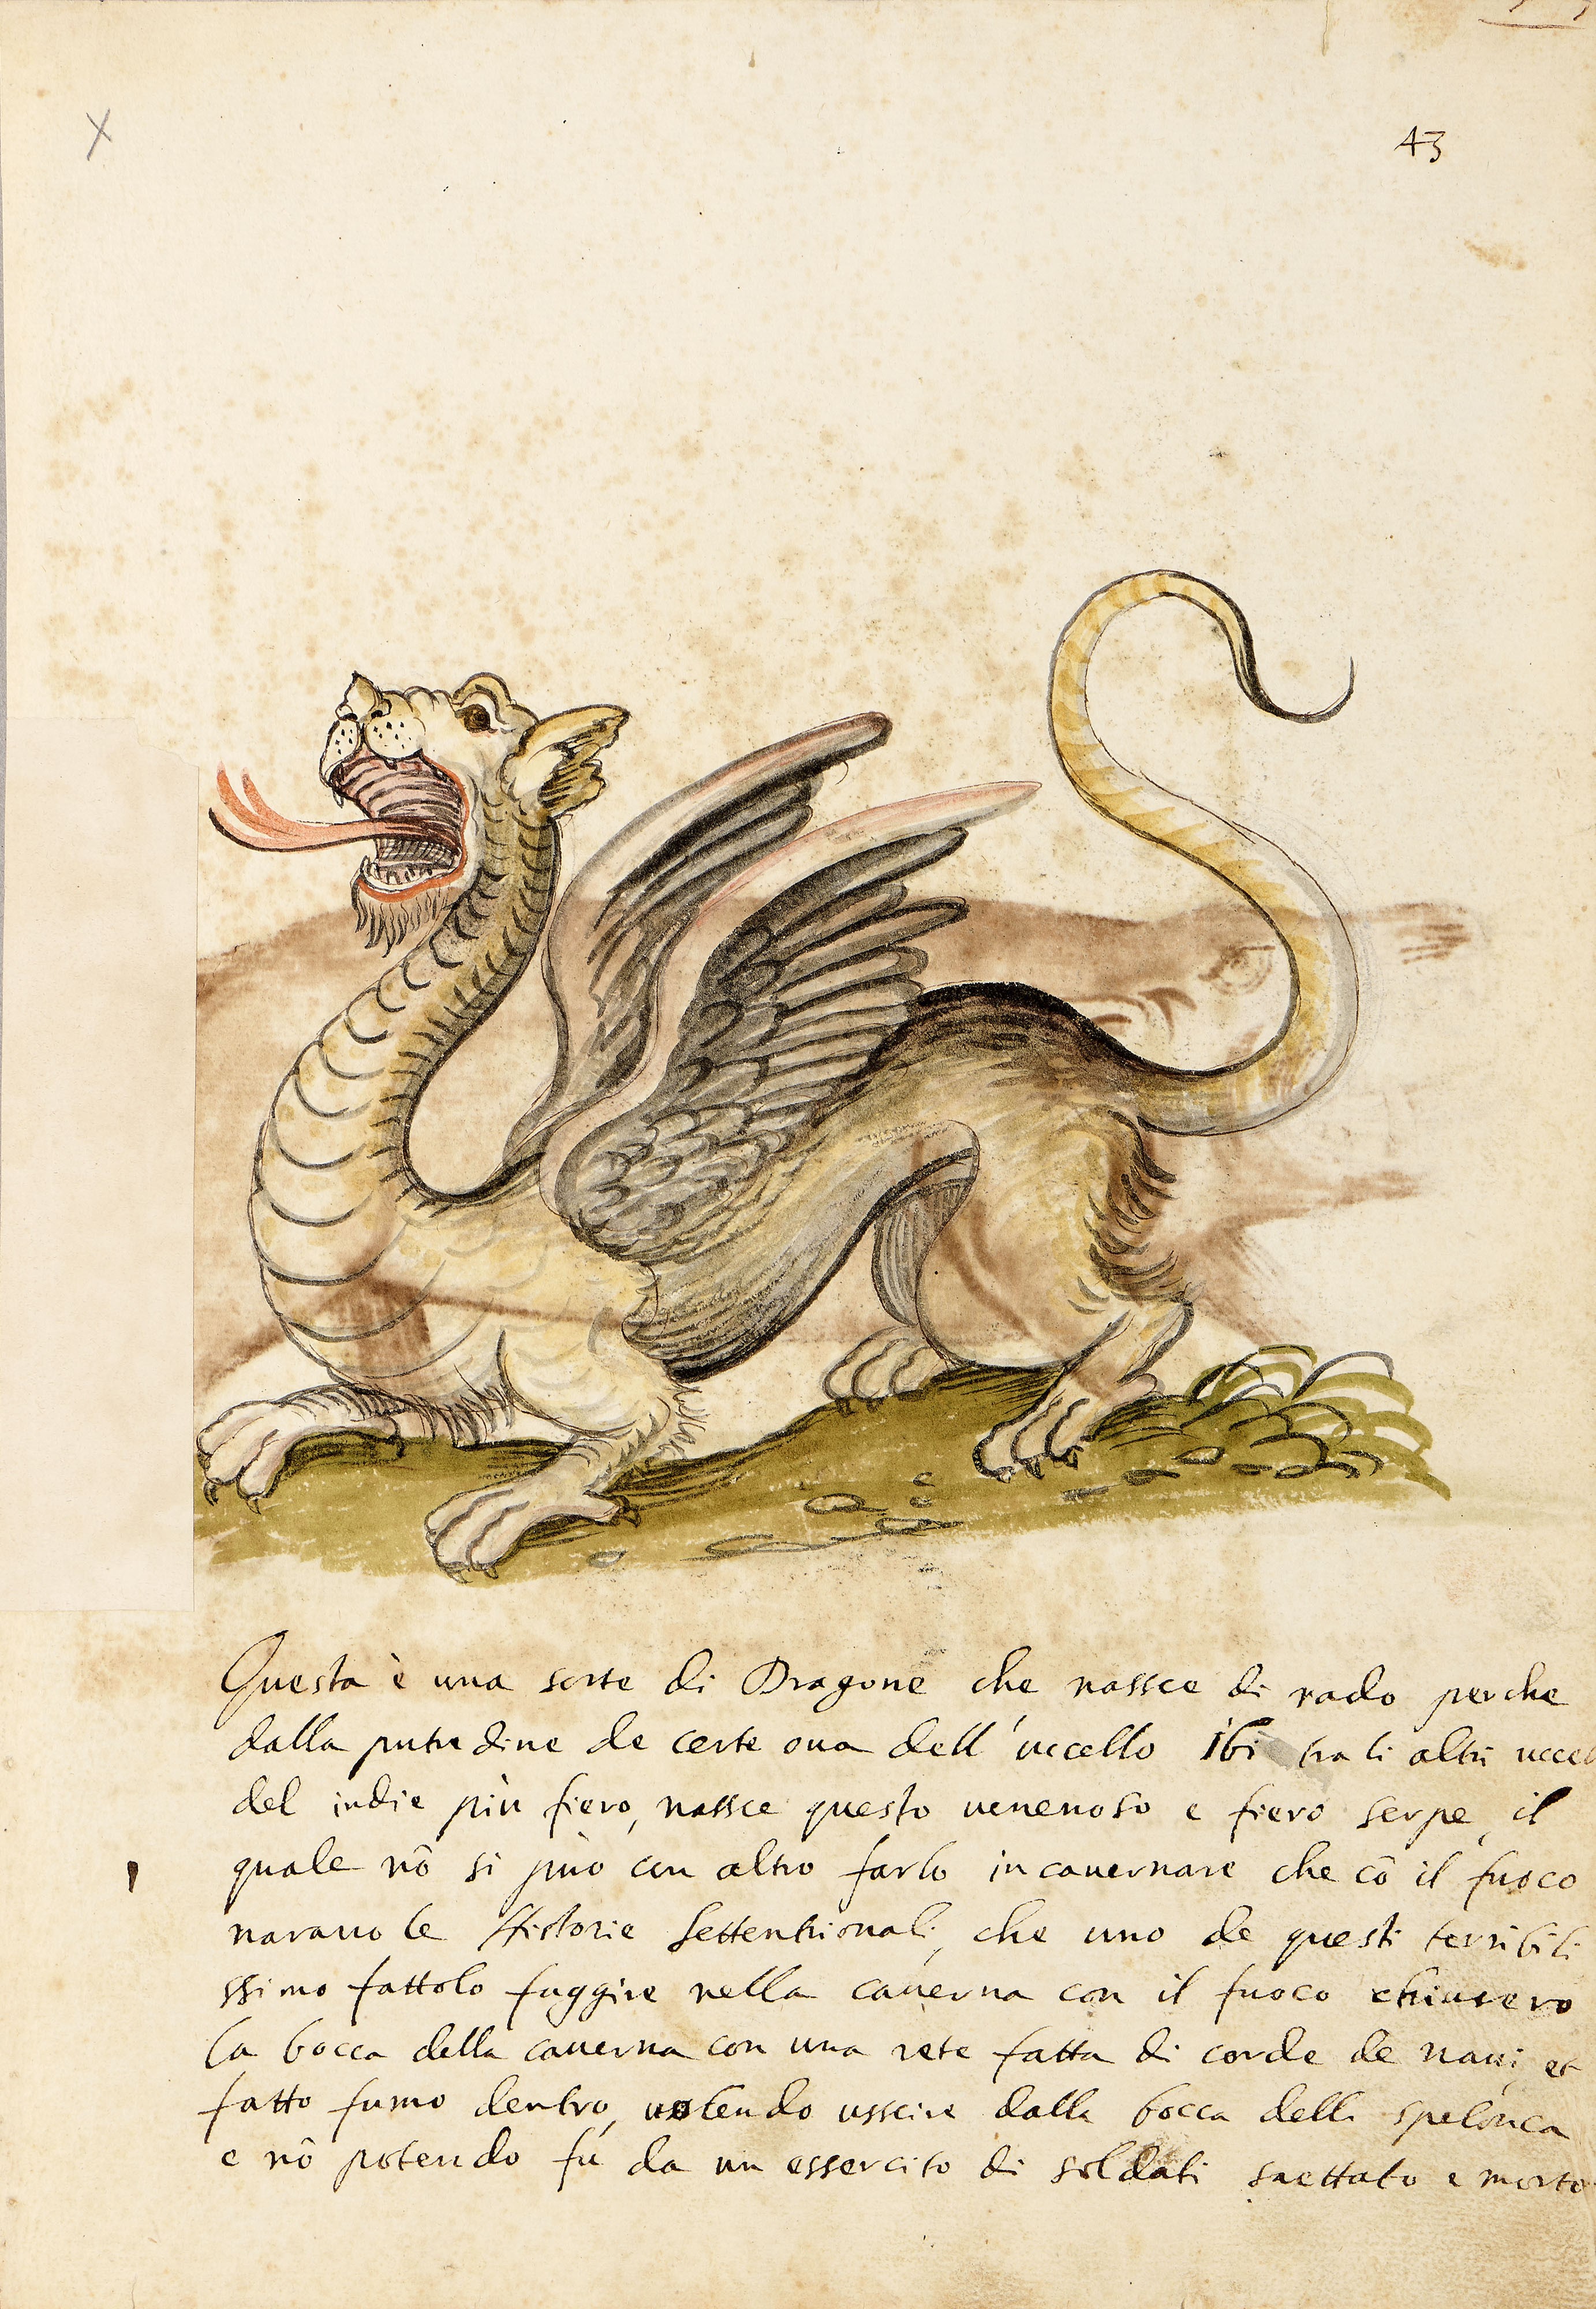 43
Questa è una sorte di Dragone che nassce di rado perche
dalla putredine de certe oua dell'uccello Ibi tra li altri uccel
del indie più fiero, nassce questo uenenoso e fiero serpe, il
quale nõ si può con altro farlo incauernare che cõ il fuoco
narano le Historie settentrionali, che uno de questi terribili
ssimo fattolo fuggire nella cauerna con il fuoco chiusero
la bocca della cauerna con una rete fatta di corde de naui, et
fatto fumo dentro, uolendo usscire dalla bocca della spelonca
e nõ potendo fú da un essercito di soldati saettato e morto